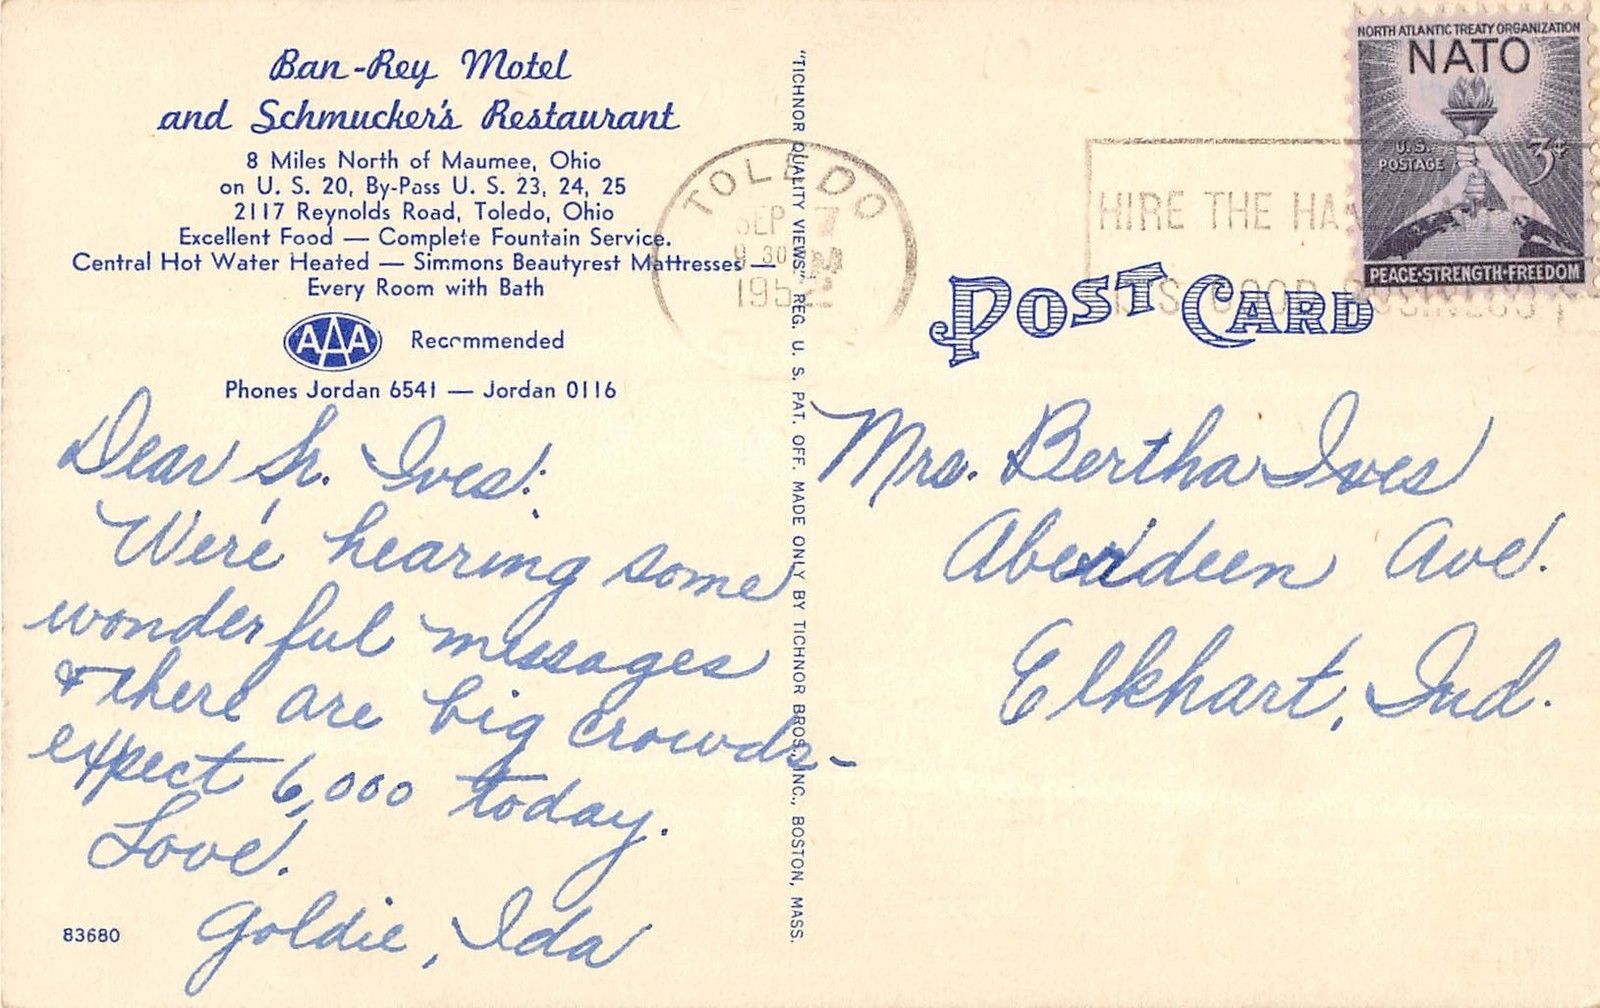 Ban-Rey Motel
and Schmucker's Restaurant
8 Miles North of Maumee, Ohio
on U. S. 20, By-Pass U. S. 23, 24, 25
2117 Reynolds Road, Toledo, Ohio
Excellent Food — Complete Fountain Service.
Central Hot Water Heated — Simmons Beautyrest Mattresses —
Every Room with Bath
AAA Recommended
Phones Jordan 6541 — Jordan 0116
Dear Sr. Ives:
We're hearing some
wonderful messages
& there are big crowds-
expect 6,000 today.
Love.
Goldie, Ida
83680
"TICHNOR QUALITY VIEWS" REG. U. S. PAT. OFF. MADE ONLY BY TICHNOR BROS., INC., BOSTON, MASS.
TOLEDO
SEP 7
9 30
1952
HIRE THE
GOOD BUSINESS
NORTH ATLANTIC TREATY ORGANIZATION
NATO
U.S. POSTAGE
3¢
PEACE·STRENGTH·FREEDOM
POST CARD
Mrs. Bertha Ives
Aberdeen Ave.
Elkhart, Ind.